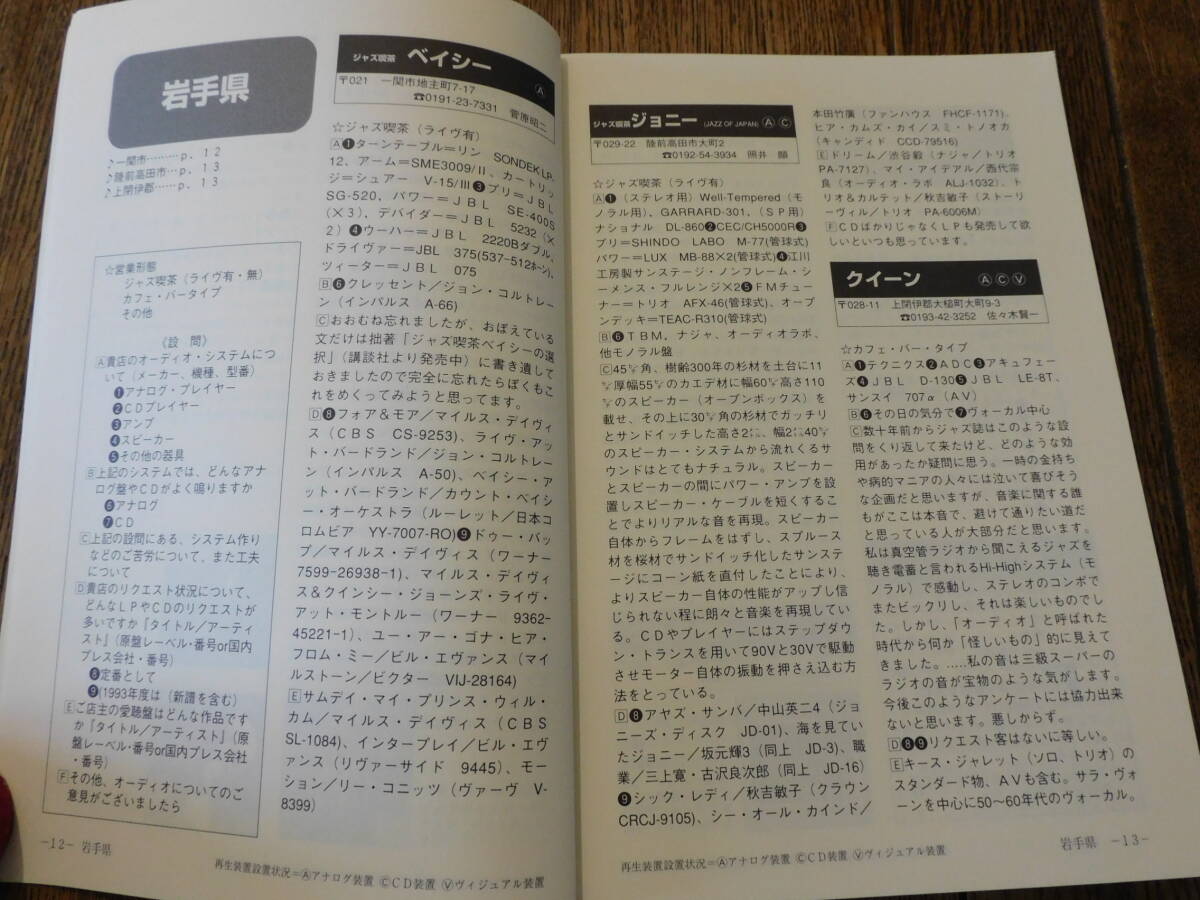 岩手県
♪一関市………p. 12
♪陸前高田市…p. 13
♪上閉伊郡……p. 13
☆営業形態
ジャズ喫茶（ライヴ有・無）
カフェ・バータイプ
その他
《設　問》
Ⓐ貴店のオーディオ・システムにつ
いて（メーカー、機種、型番）
❶アナログ・プレイヤー
❷ＣＤプレイヤー
❸アンプ
❹スピーカー
❺その他の器具
Ⓑ上記のシステムでは、どんなアナ
ログ盤やＣＤがよく鳴りますか
❻アナログ
❼ＣＤ
Ⓒ上記の設問にある、システム作り
などのご苦労について、また工夫
について
Ⓓ貴店のリクエスト状況について、
どんなＬＰやＣＤのリクエストが
多いですか『タイトル／アーティ
スト』（原盤レーベル・番号or国内
プレス会社・番号）
❽定番として
❾(1993年度は（新譜を含む）
Ⓔご店主の愛聴盤はどんな作品です
か『タイトル／アーティスト』（原
盤レーベル・番号or国内プレス会社
・番号）
Ⓕその他、オーディオについてのご
意見がございましたら
−12− 岩手県
ジャズ喫茶 ベイシー Ⓐ
〒021　一関市地主町7-17
☎0191-23-7331　菅原昭二
☆ジャズ喫茶（ライヴ有）
Ⓐ❶ターンテーブル＝リン　SONDEK LP-
12、アーム＝SME3009/Ⅱ、カートリッ
ジ＝シュアー　V-15/Ⅲ❸プリ＝ＪＢＬ
SG-520、パワー＝ＪＢＬ　SE-400S
（×３）、デバイダー＝ＪＢＬ　5232（×
２）❹ウーハー＝ＪＢＬ　2220Bダブル、
ドライヴァー＝JBL　375(537-512ホーン)、
ツィーター＝ＪＢＬ　075
Ⓑ❻クレッセント／ジョン・コルトレー
ン（インパルス　A-66）
Ⓒおおむね忘れましたが、おぼえている
文だけは拙著「ジャズ喫茶ベイシーの選
択」（講談社より発売中）に書き遺して
おきましたので完全に忘れたらぼくもこ
れをめくってみようと思ってます。
Ⓓ❽フォア＆モア／マイルス・デイヴィ
ス（ＣＢＳ　CS-9253)、ライヴ・アッ
ト・バードランド／ジョン・コルトレー
ン（インパルス　A-50)、ベイシー・ア
ット・バードランド／カウント・ベイシ
ー・オーケストラ（ルーレット／日本コ
ロムビア　YY-7007-RO)❾ドゥー・バッ
プ／マイルス・デイヴィス（ワーナー
7599-26938-1)、マイルス・デイヴィ
ス＆クインシー・ジョーンズ・ライヴ・
アット・モントルー（ワーナー　9362-
45221-1)、ユー・アー・ゴナ・ヒア・
フロム・ミー／ビル・エヴァンス（マイ
ルストーン／ビクター　VIJ-28164)
Ⓔサムデイ・マイ・プリンス・ウィル・
カム／マイルス・デイヴィス（ＣＢＳ
SL-1084)、インタープレイ／ビル・エヴ
ァンス（リヴァーサイド　9445)、モー
ション／リー・コニッツ（ヴァーヴ　V-
8399)
再生装置設置状況＝Ⓐアナログ装置 ⒸＣＤ装置 Ⓥヴィジュアル装置
ジャズ喫茶 ジョニー (JAZZ OF JAPAN) ⒶⒸ
〒029-22　陸前高田市大町2
☎0192-54-3934　照井　顕
☆ジャズ喫茶（ライヴ有）
Ⓐ❶（ステレオ用）Well-Tempered（モ
ノラル用)、GARRARD-301、（ＳＰ用）
ナショナル　DL-860❷CEC/CH5000R❸
プリ＝SHINDO　LABO　M-77(管球式)
パワー＝LUX　MB-88×2(管球式)❹江川
工房製サンステージ・ノンフレーム・シ
ーメンス・フルレンジ×2❺ＦＭチュー
ナー＝トリオ　AFX-46(管球式)、オープ
ンデッキ＝TEAC-R310(管球式)
Ⓑ❻ＴＢＭ、ナジャ、オーディオラボ、
他モノラル盤
Ⓒ45㌢角、樹齢300年の杉材を土台に11
㌢厚幅55㌢のカエデ材に幅60㌢高さ110
㌢のスピーカー（オープンボックス）を
載せ、その上に30㌢角の杉材でガッチリ
とサンドイッチした高さ2㍍、幅2㍍40㌢
のスピーカー・システムから流れくるサ
ウンドはとてもナチュラル。スピーカー
とスピーカーの間にパワー・アンプを設
置しスピーカー・ケーブルを短くするこ
とでよりリアルな音を再現。スピーカー
自体からフレームをはずし、スプルース
材を桜材でサンドイッチ化したサンステ
ージにコーン紙を直付したことにより、
よりスピーカー自体の性能がアップし信
じられない程に朗々と音楽を再現してい
る。ＣＤやプレイヤーにはステップダウ
ン・トランスを用いて90Vと30Vで駆動
させモーター自体の振動を押さえ込む方
法をとっている。
Ⓓ❽アヤズ・サンバ／中山英二4（ジョ
ニーズ・ディスク　JD-01)、海を見てい
たジョニー／坂元輝3（同上　JD-3)、職
業／三上寛・古沢良次郎（同上　JD-16)
❾シック・レディ／秋吉敏子（クラウン
CRCJ-9105)、シー・オール・カインド／
本田竹廣（ファンハウス　FHCF-1171)、
ヒア・カムズ・カイ／スミ・トノオカ
（キャンディド　CCD-79516)
Ⓔドリーム／渋谷毅（ナジャ／トリオ
PA-7127)、マイ・アイデアル／西代宗
良（オーディオ・ラボ　ALJ-1032)、ト
リオ＆カルテット／秋吉敏子（ストーリ
ーヴィル／トリオ　PA-6006M）
ⒻＣＤばかりじゃなくＬＰも発売して欲
しいといつも思っています。
クイーン ⒶⒸⓋ
〒028-11　上閉伊郡大槌町大町9-3
☎0193-42-3252　佐々木賢一
☆カフェ・バー・タイプ
Ⓐ❶テクニクス❷ＡＤＣ❸アキュフェー
ズ❹ＪＢＬ　D-130❺ＪＢＬ　LE-8T、
サンスイ　707α（ＡＶ）
Ⓑ❻その日の気分で❼ヴォーカル中心
Ⓒ数十年前からジャズ誌はこのような設
問をくり返して来たけど、どのような効
用があったか疑問に思う。一時の金持ち
や病的マニアの人々には泣いて喜びそう
な企画だと思いますが、音楽に関する誰
もがここは本音で、避けて通りたい道だ
と思っている人が大部分だと思います。
私は真空管ラジオから聞こえるジャズを
聴き電蓄と言われるHi-Highシステム（モ
ノラル）で感動し、ステレオのコンポで
またビックリし、それは楽しいものでし
た。しかし、「オーディオ」と呼ばれた
時代から何か「怪しいもの」的に見えて
きました。.....私の音は三級スーパーの
ラジオの音が宝物のような気がします。
今後このようなアンケートには協力出来
ないと思います。悪しからず。
Ⓓ❽❾リクエスト客はないに等しい。
Ⓔキース・ジャレット（ソロ、トリオ）の
スタンダード物、ＡＶも含む。サラ・ヴォ
ーンを中心に50〜60年代のヴォーカル。
再生装置設置状況＝Ⓐアナログ装置 ⒸＣＤ装置 Ⓥヴィジュアル装置
岩手県　−13−